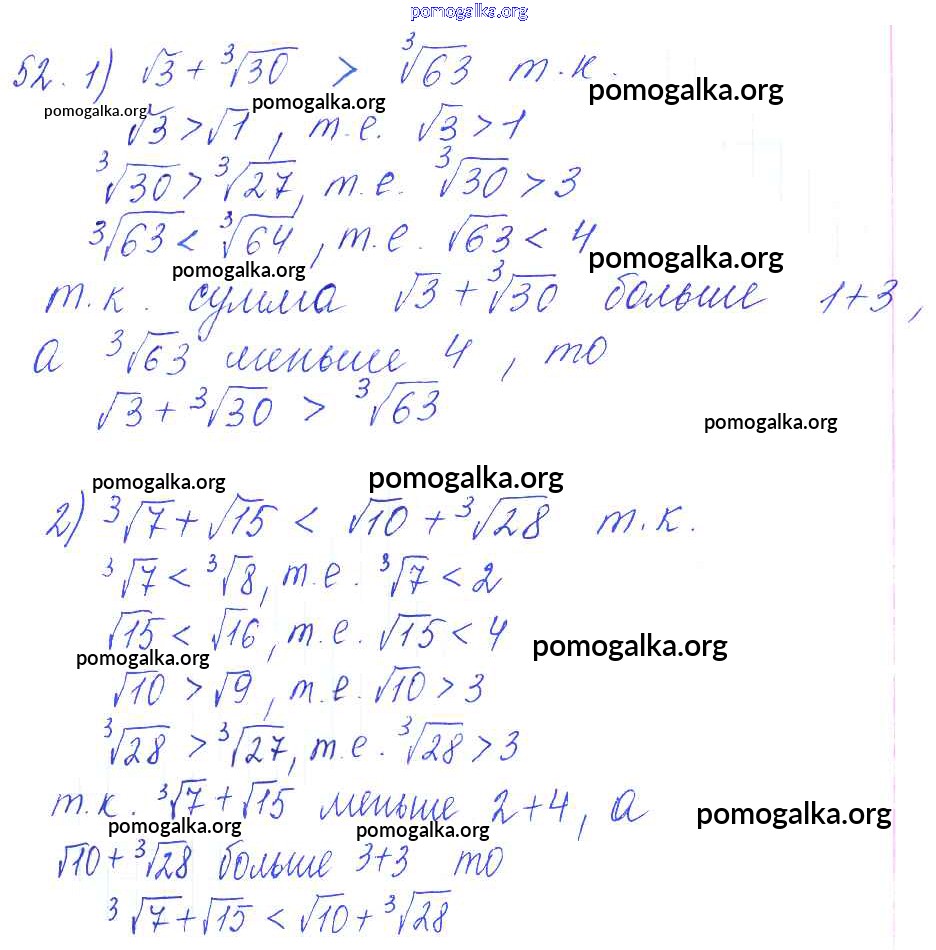 pomogalka.org
52. 1) √3 + ³√30 > ³√63 т.к.
pomogalka.org pomogalka.org pomogalka.org
√3 > √1, т.е. √3 > 1
³√30 > ³√27, т.е. ³√30 > 3
³√63 < ³√64, т.е. √63 < 4
pomogalka.org pomogalka.org
т.к. сумма √3 + ³√30 больше 1+3,
а ³√63 меньше 4, то
√3 + ³√30 > ³√63
pomogalka.org
pomogalka.org pomogalka.org
2) ³√7 + √15 < √10 + ³√28 т.к.
³√7 < ³√8, т.е. ³√7 < 2
√15 < √16, т.е. √15 < 4
pomogalka.org pomogalka.org
√10 > √9, т.е. √10 > 3
³√28 > ³√27, т.е. ³√28 > 3
т.к. ³√7 + √15 меньше 2+4, а
pomogalka.org pomogalka.org pomogalka.org
√10 + ³√28 больше 3+3 то
³√7 + √15 < √10 + ³√28